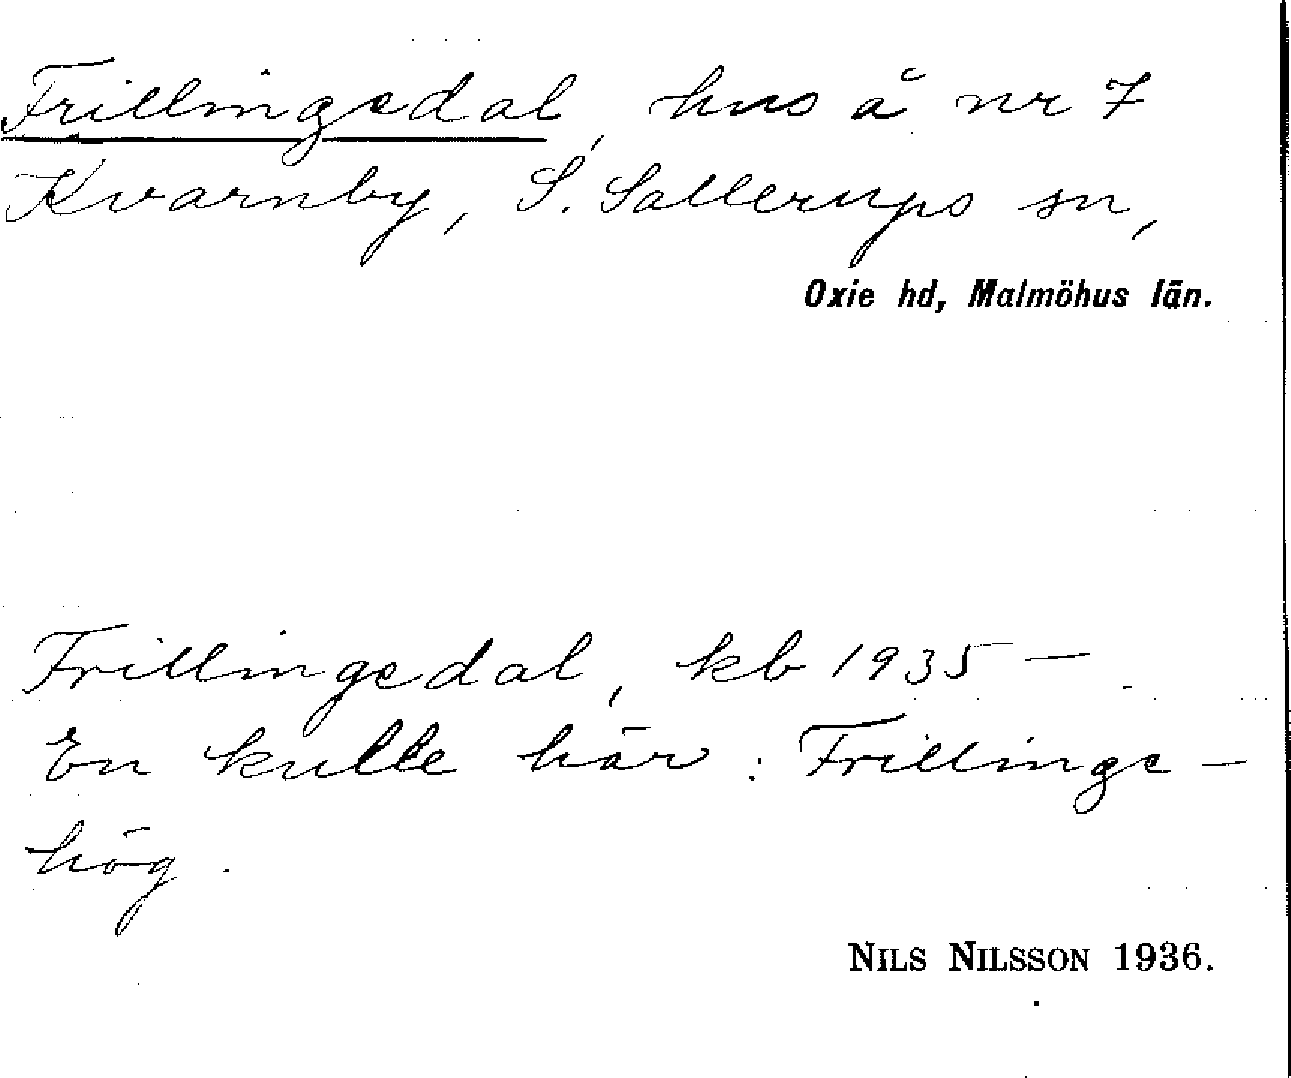 Frillingsdal, hus å nr 7
Kvarnby, S. Sallerups sn,
Oxie hd, Malmöhus län.
Frillingsdal, kb 1935 —
En kulle här: Frillings-
hög.
NILS NILSSON 1936.